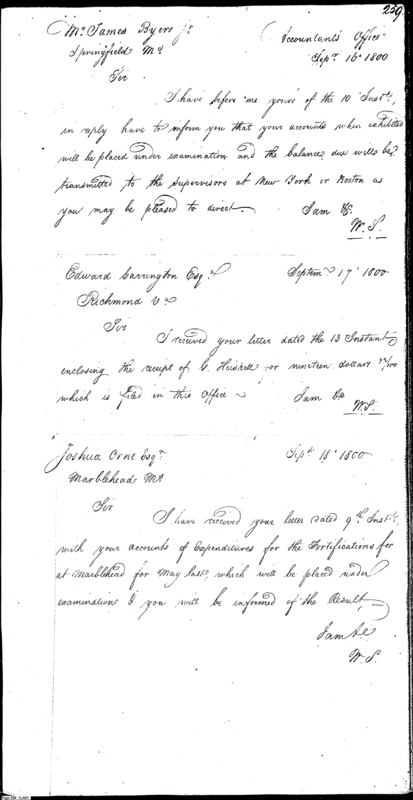 259.
Mr. James Byers Jr.
Springfield Ms.
Accountants Office
Sepr. 16th 1800
Sir
I have before me yours of the 10th Inst.,
in reply have to inform you that your accounts when exhibited
will be placed under examination and the balance due will be
transmitted to the Supervisors at New York or Boston as
you may be pleased to direct.
I am &c.
W. S.
Edward Carrington Esqr.
Septem. 17th 1800
Richmond Va.
Sir
I received your letter dated the 13 Instant
enclosing the receipt of C. Heiskell for nineteen dollars /100
which is filed in this Office
I am &c
W. S.
Joshua Orne Esqr.
Sept. 18th 1800
Marblehead Ms.
Sir
I have received your letter dated 9th Inst.
with your accounts of Expenditures for the Fortifications for
at Marblehead for May last, which will be placed under
examination & you will be informed of the Result,
I am &c
W. S.